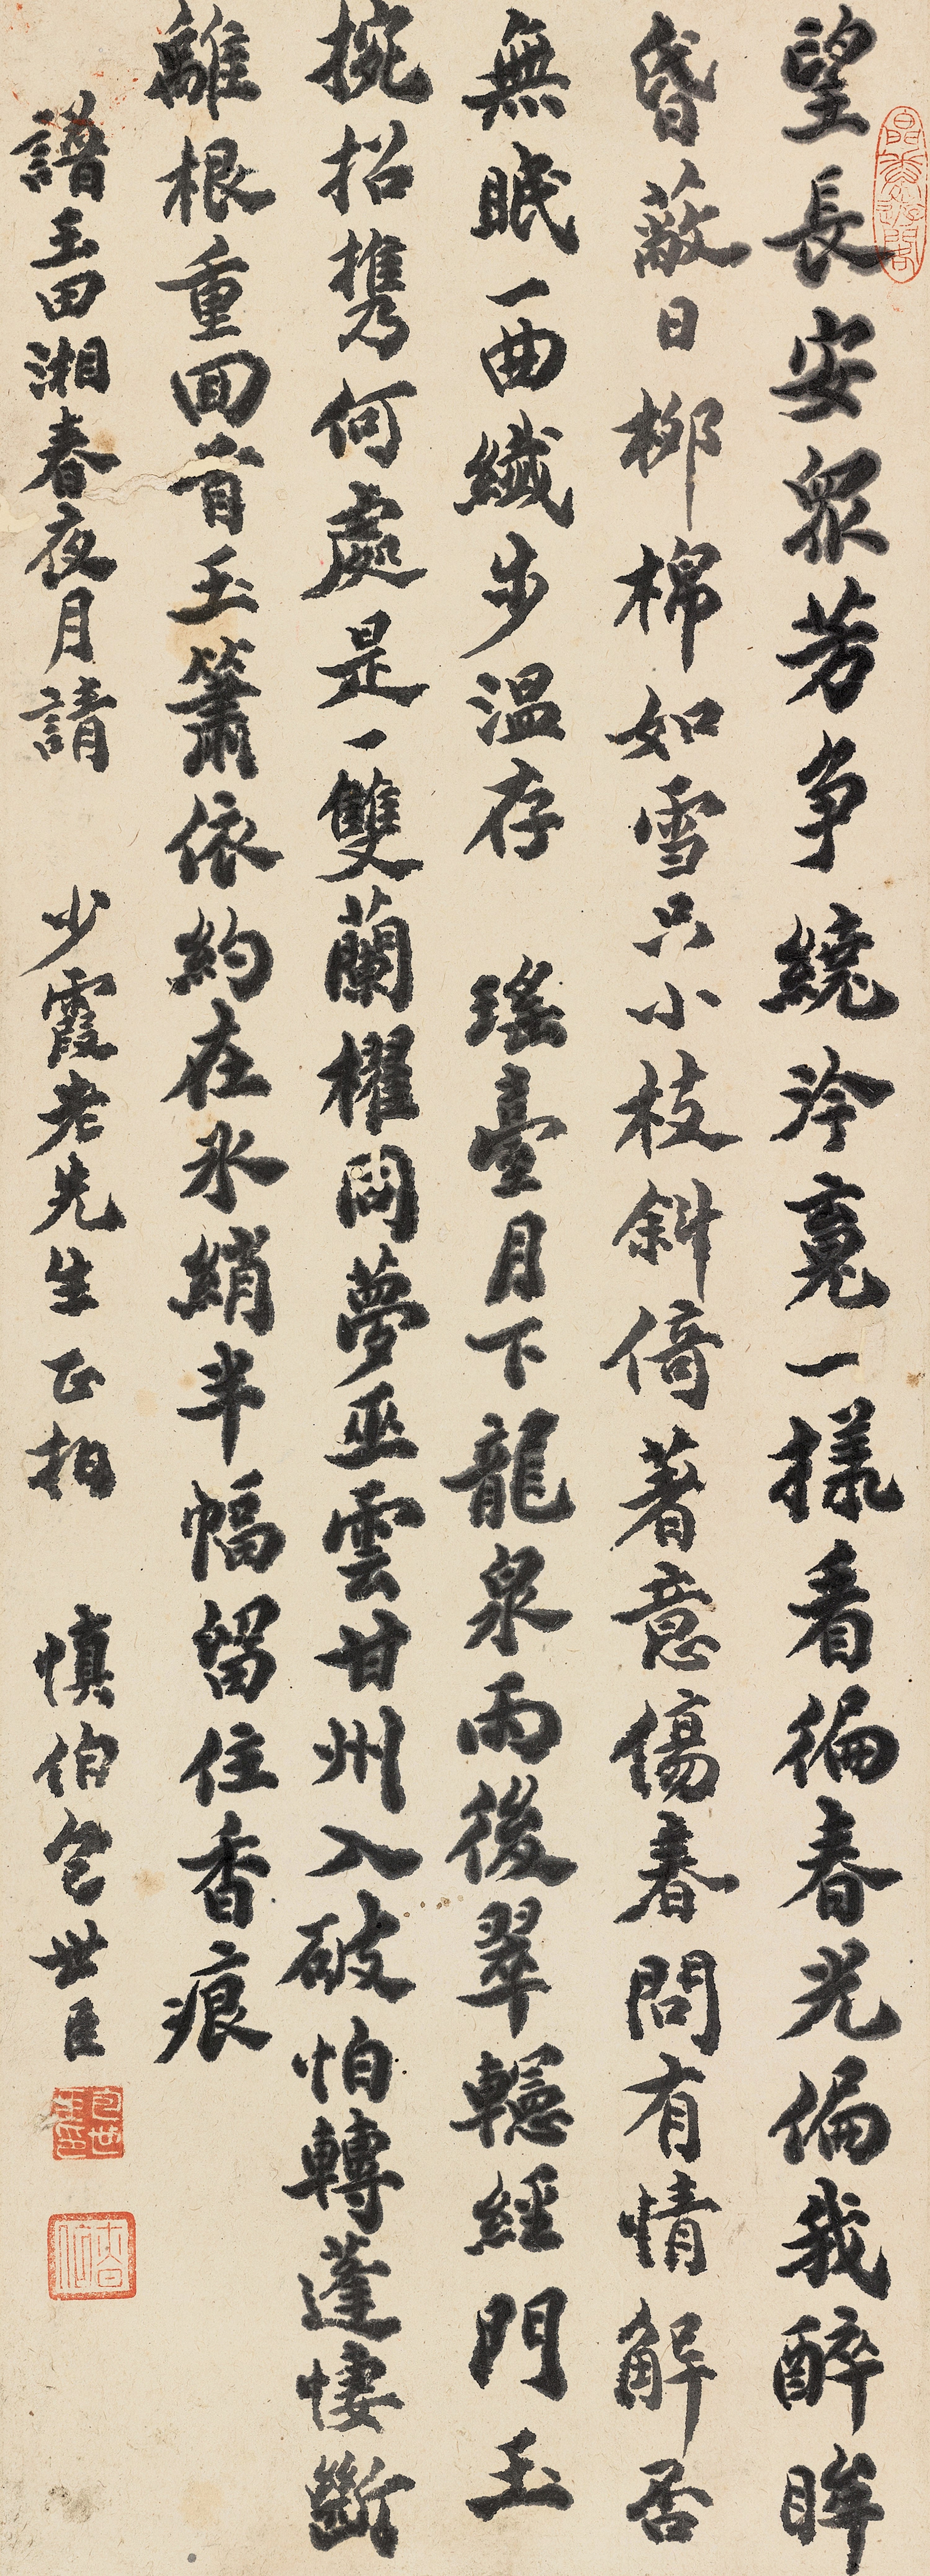 望長安眾芳爭繞泠竟一樣看徧春光偏我醉眸
昏蔽日柳棉如雪只小枝斜倚著意傷春問有情解否
無眠一曲纖步溫存 瑤臺月下龍泉雨後翠轣經門玉
捥招攜何處是一雙蘭櫂問夢巫雲甘州入破怕轉蓬悽斷
離根重回首玉簫依約在冰綃半幅留住香痕
譜玉田湘春夜月請 少霞老先生正拍 慎伯包世臣
包世臣印